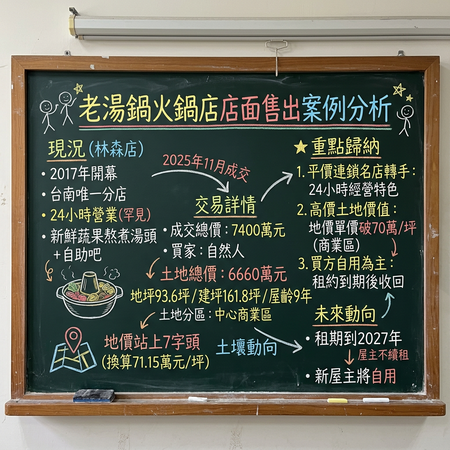 老湯鍋火鍋店店面售出案例分析
現況 (林森店)
• 2017年開幕
• 台南唯一分店
• 24小時營業(罕見)
• 新鮮蔬果熬煮湯頭
+自助吧
地價站上7字頭
(換算71.15萬元/坪)
2025年11月成交
交易詳情
• 成交總價：7400萬元
• 買家：自然人
土地總價：6660萬元
地坪93.6坪/建坪161.8坪/屋齡9年
土地分區：中心商業區
土壤動向
★ 重點歸納
1. 平價連鎖名店轉手：
24小時經營特色
2. 高價土地價值：
地價單價破70萬/坪
(商業區)
3. 買方自用為主：
租約到期後收回
未來動向
• 租期到2027年
屋主不續租
• 新屋主將自用